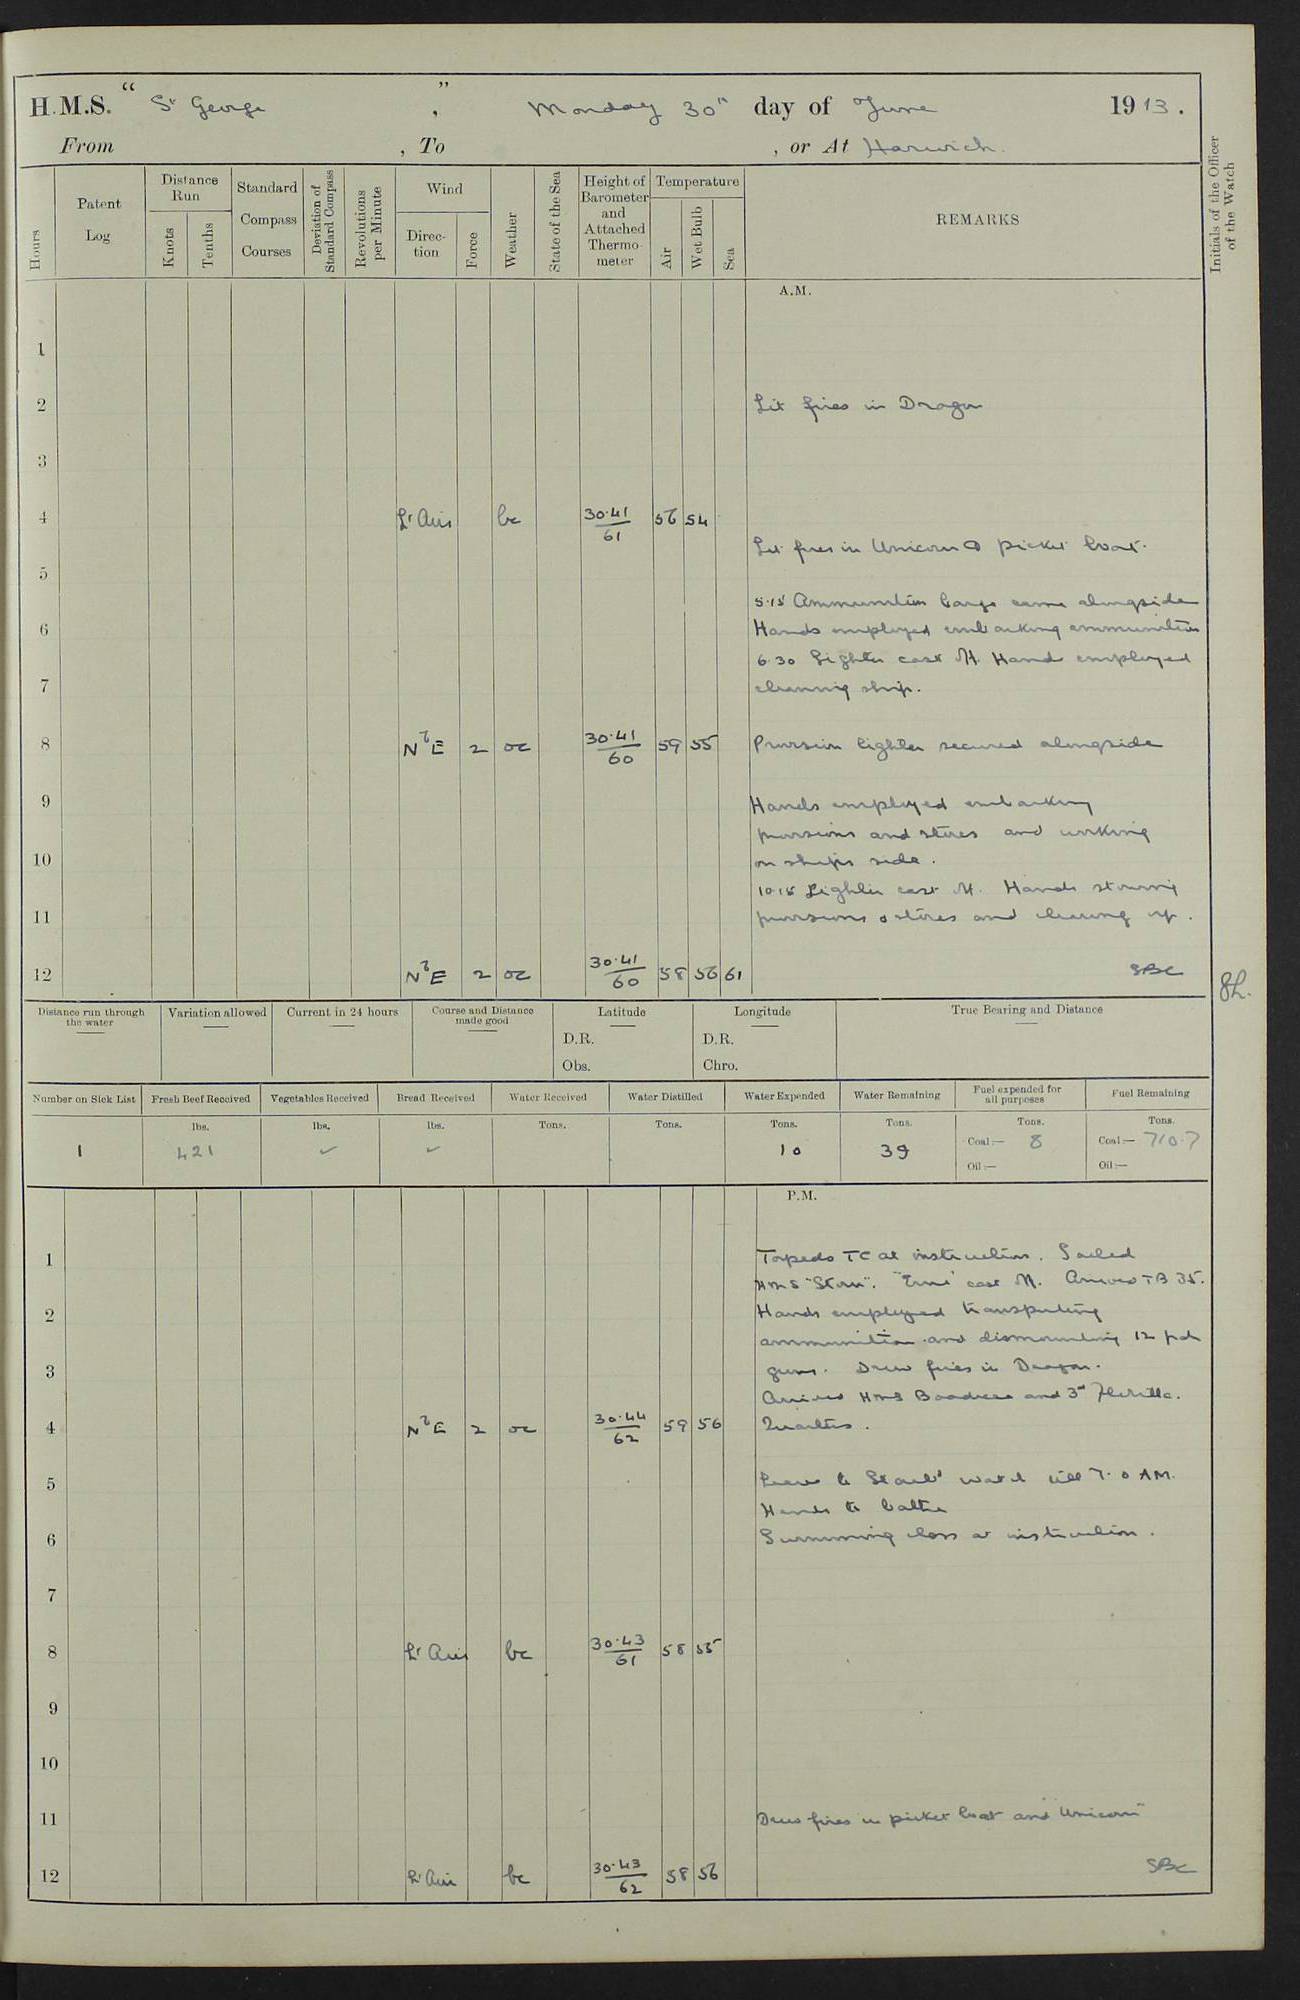 H.M.S. “ St George ” , Monday 30th day of June 1913.
From , To , or At Harwich.
Hours
Patent Log
Distance Run
Knots
Tenths
Standard Compass Courses
Deviation of Standard Compass
Revolutions per Minute
Wind
Direction
Force
Weather
State of the Sea
Height of Barometer and Attached Thermometer
Temperature
Air
Wet Bulb
Sea
REMARKS
Initials of the Officer of the Watch
A.M.
1
2 Lit fires in Dragon
3
4 Lt Airs bc 30.41 61 56 54
Lit fires in Unicorn & picket boat.
5
5.15 Ammunition barge came alongside
6 Hands employed embarking ammunition
6.30 Lighter cast off. Hands employed
7 cleaning ship.
8 NbE 2 oc 30.41 60 59 55 Provision lighter secured alongside
9 Hands employed embarking
provisions and stores and working
10 on ships side.
10.15 Lighter cast off. Hands stowing
11 provisions & stores and clearing up.
12 NbE 2 oc 30.41 60 58 56 61 SBC
Distance run through the water
Variation allowed
Current in 24 hours
Course and Distance made good
Latitude
D.R.
Obs.
Longitude
D.R.
Chro.
True Bearing and Distance
Number on Sick List
Fresh Beef Received
Vegetables Received
Bread Received
Water Received
Water Distilled
Water Expended
Water Remaining
Fuel expended for all purposes
Fuel Remaining
lbs. lbs. lbs. Tons. Tons. Tons. Tons. Tons. Tons.
1 421 ✓ ✓ 10 39 Coal:— 8 Coal:— 710.7
Oil:— Oil:—
P.M.
1 Torpedo TC at instruction. Sailed
HMS "Stour". "Erne" cast off. Arrived TB 35.
2 Hands employed transporting
ammunition and dismounting 12 pdr
3 guns. Drew fires in Dragon.
Arrived HMS Boadicea and 3rd Flotilla.
4 NbE 2 oc 30.44 62 59 56 Quarters.
5 Leave to Starbd watch till 7.0 AM.
Hands to bathe
6 Swimming class at instruction.
7
8 Lt Airs bc 30.43 61 58 55
9
10
11 Drew fires in picket boat and "Unicorn"
12 Lt Air bc 30.43 62 58 56 SBC